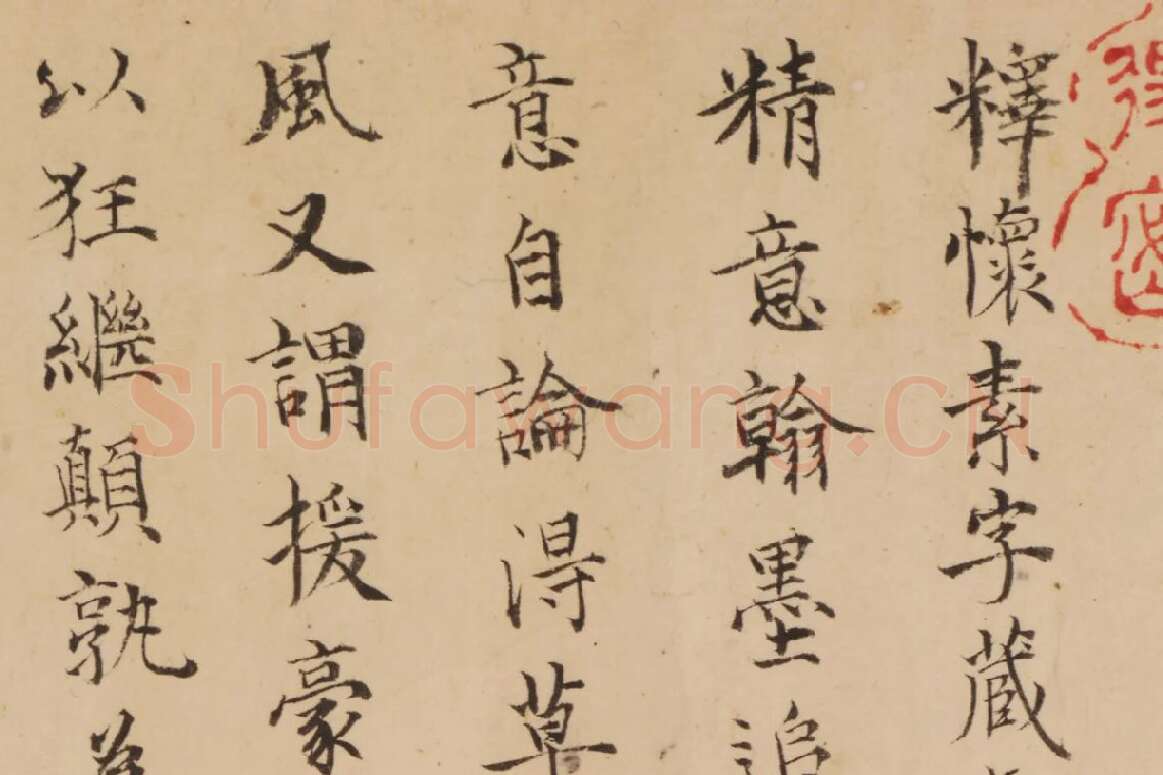 釋懷素字藏
精意翰墨追
意自論得草
風又謂援豪
以狂繼顛孰為
Shufawang.CN